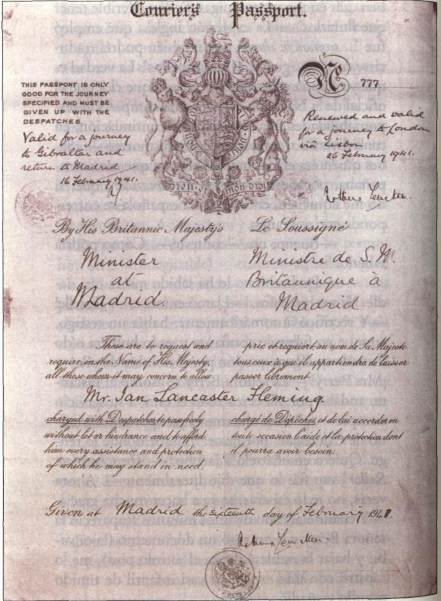 Courier's Passport.
THIS PASSPORT IS ONLY
GOOD FOR THE JOURNEY
SPECIFIED AND MUST BE
GIVEN UP WITH THE
DESPATCHES.
Valid for a journey
to Gibraltar and
return to Madrid
16 February 1941.
No 777
Renewed and valid
for a journey to London
via Lisbon
26 February 1941.
By His Britannic Majesty's
Minister
at
Madrid.
Le Soussigné
Ministre de S. M.
Britannique à
Madrid
These are to request and
require, in the Name of His Majesty,
all those whom it may concern to allow
prie et requiert au nom de Sa Majesté
tous ceux à qui il appartiendra de laisser
passer librement
Mr. Ian Lancaster Fleming
charged with Despatches to pass freely
without let or hindrance and to afford
him every assistance and protection
of which he may stand in need.
chargé de Dépêches et de lui accorder en
toute occasion l'aide et la protection dont
il pourra avoir besoin.
Given at Madrid the sixteenth day of February 1941.